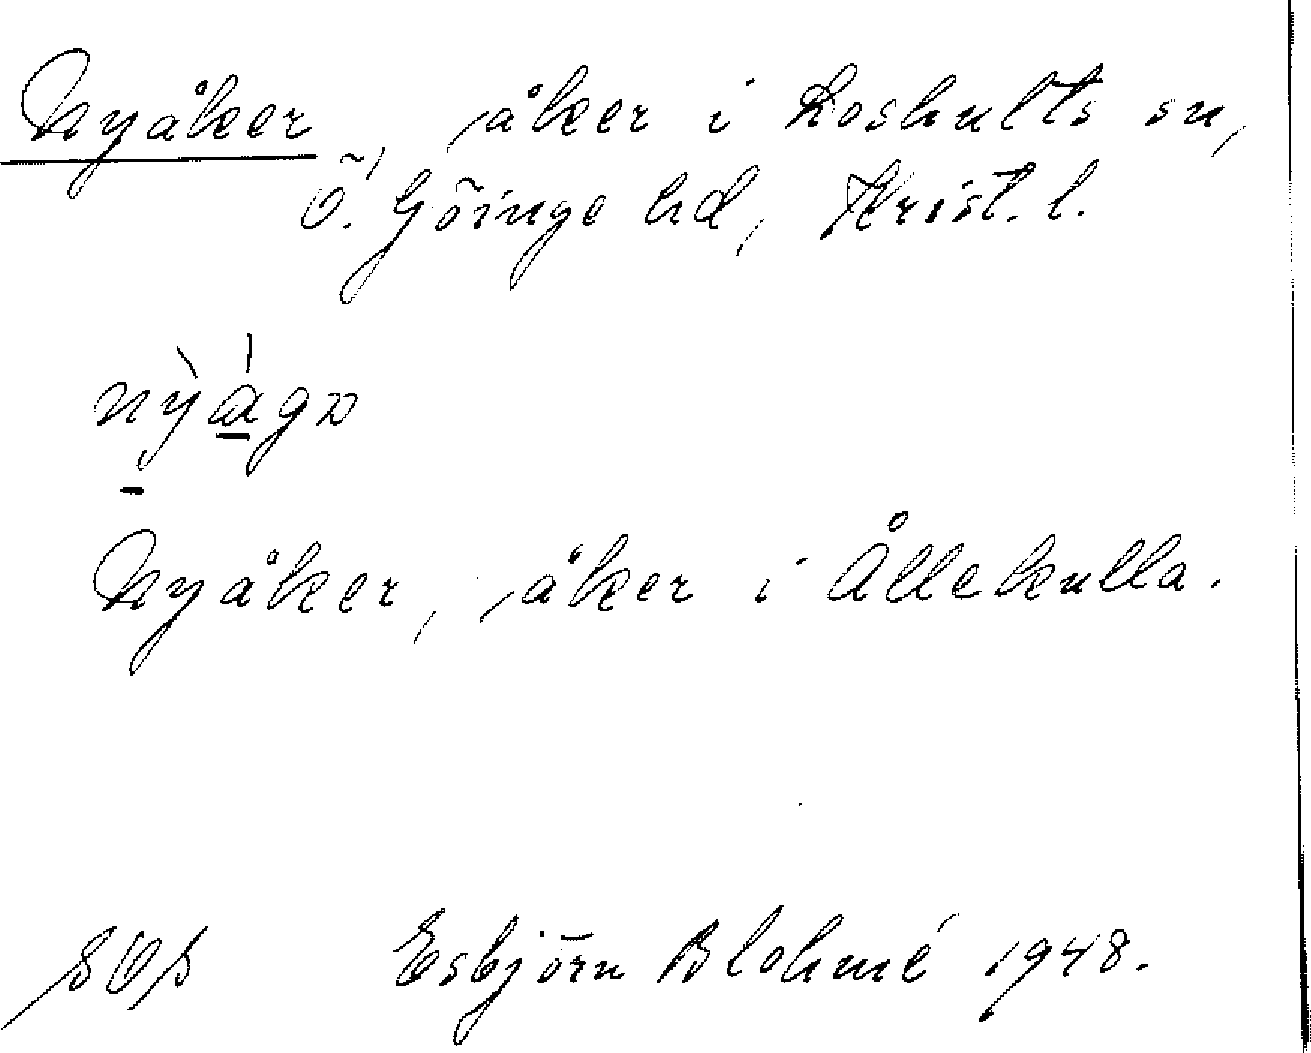 Nyåker, åker i Loshults sn,
Ö. Göinge hd, Krist. l.
nỳágɒ
Nyåker, åker i Ållekulla.
Esbjörn Blohmé 1948.